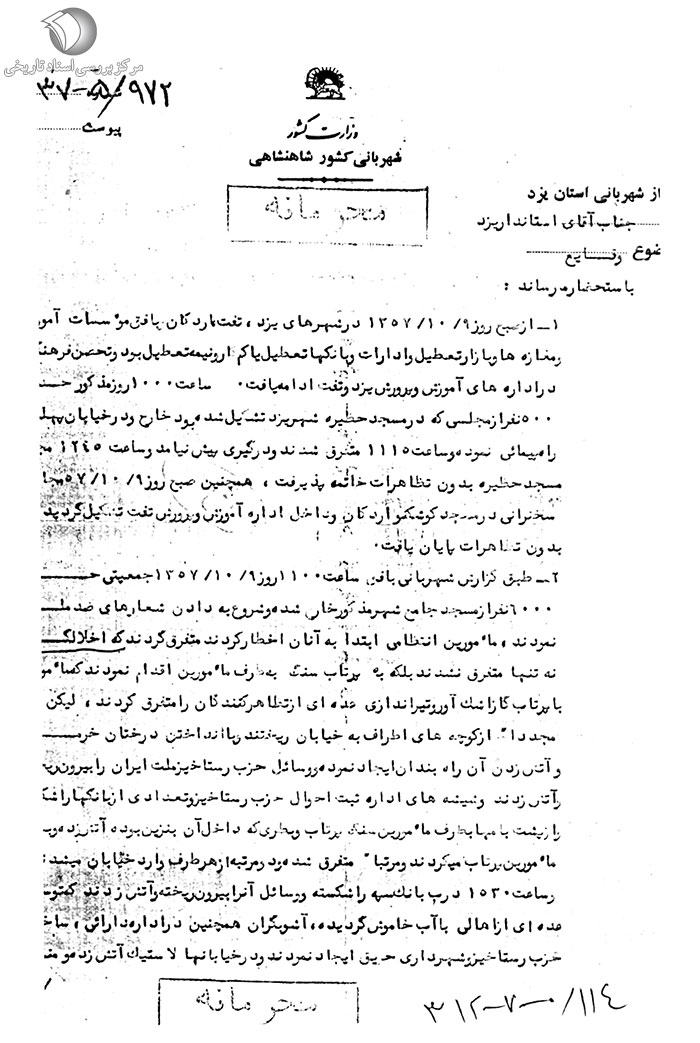 مرکز بررسی اسناد تاریخی
۳۷-۵/۹۷۲
پیوست
وزارت کشور
شهربانی کشور شاهنشاهی
محرمانه
از شهربانی استان یزد
جناب آقای استاندار یزد
ضوع وقایع
باستحضار میرساند :
۱ـ از صبح روز ۹/ ۱۰/ ۱۳۵۷ در شهرهای یزد ، تفت اردکان بافق مؤسسات آمو
و مغازه ها و بازار تعطیل و ادارات و بانکها تعطیل یا کم و نیمه تعطیل بود و تحصن فرهنگ
در اداره های آموزش و پرورش یزد و تفت ادامه یافت . ساعت ۱۰۰۰ روز مذکور حد
۵۰۰ نفر از مجلسی که در مسجد حظیره شهر یزد تشکیل شده بود خارج و در خیابان پهل
راه پیمائی نموده و ساعت ۱۱۱۵ متفرق شدند و درگیری پیش نیامد و ساعت ۱۲۴۵
مسجد حظیره بدون تظاهرات خاتمه پذیرفت ، همچنین صبح روز ۹/ ۱۰/ ۵۷
سخنرانی در مسجد اردکان و داخل اداره آموزش و پرورش تفت تشکیل گردید
بدون تظاهرات پایان یافت .
۲ـ طبق گزارش شهربانی بافق ساعت ۱۱۰۰ روز ۹/ ۱۰/ ۱۳۵۷ جمعیتی حـ
۶۰۰۰ نفر از مسجد جامع شهر مذکور خارج شده و شروع به دادن شعارهای ضد
نمودند ، مأمورین انتظامی ابتدا به آنان اخطار کردند متفرق گردند که اخلالگـ
نه تنها متفرق نشدند بلکه به پرتاب سنگ بطرف مأمورین اقدام نمودند که مأمو
با پرتاب گاز اشک آور و تیراندازی عده ای از تظاهرکنندگان را متفرق کردند ، لیکن
مجدداً از کوچه های اطراف به خیابان ریختند و با انداختن درختان خرما
و آتش زدن آن راه بندان ایجاد نموده و وسائل حزب رستاخیز ملت ایران را بیرون
و آتش زدند و شیشه های اداره ثبت احوال حزب رستاخیز و تعدادی از بانکها را
و از پشت بامها بطرف مأمورین سنگ پرتاب و بطری که داخل آن بنزین بوده آتش زده و
مأمورین پرتاب میکردند و مرتباً متفرق شده و مرتبه از هر طرف وارد خیابان میشدند
و ساعت ۱۵۳۰ درب بانک سپه را شکسته و وسائل آنرا بیرون ریخته و آتش زدند که
عده ای از اهالی با آب خاموش گردیده ، آشوبگران همچنین در اداره دارائی ، ساخ
حزب رستاخیز و شهرداری حریق ایجاد نمودند و در خیابانها لاستیک آتش زده و
محرمانه
۳۱۲-۷-۰/۱۱۴